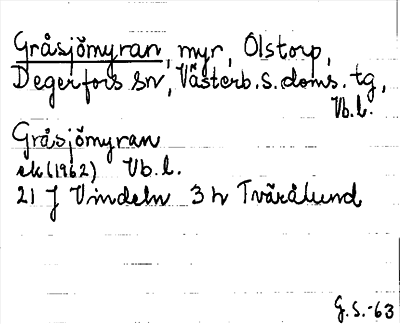 Gråsjömyran, myr, Olstorp,
Degerfors sn, Västerb. s. doms. tg,
Vb. l.
Gråsjömyran
ek (1962) Vb. l.
21 J Vindeln 3 h Tvärålund
G. S. -63